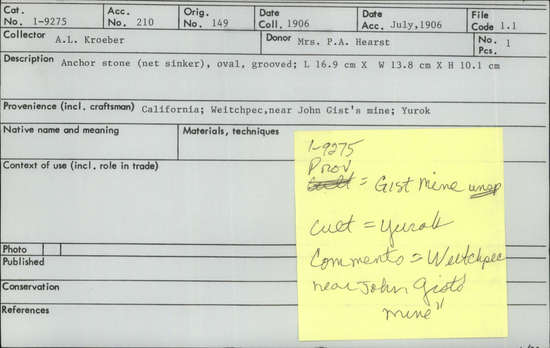 Cat. No. 1-9275 Acc. No. 210 Orig. No. 149 Date Coll. 1906 Date Acc. July,1906 File Code 1.1
Collector A.L. Kroeber Donor Mrs. P.A. Hearst No. Pcs. 1
Description Anchor stone (net sinker), oval, grooved; L 16.9 cm X W 13.8 cm X H 10.1 cm
Provenience (incl. craftsman) California; Weitchpec,near John Gist's mine; Yurok
Native name and meaning Materials, techniques
Context of use (incl. role in trade)
Photo
Published
Conservation
References
1-9275
Prov
= Gist Mine unsp
Cult = Yurok
Comments = Weitchpec
near John Gist's
mine"